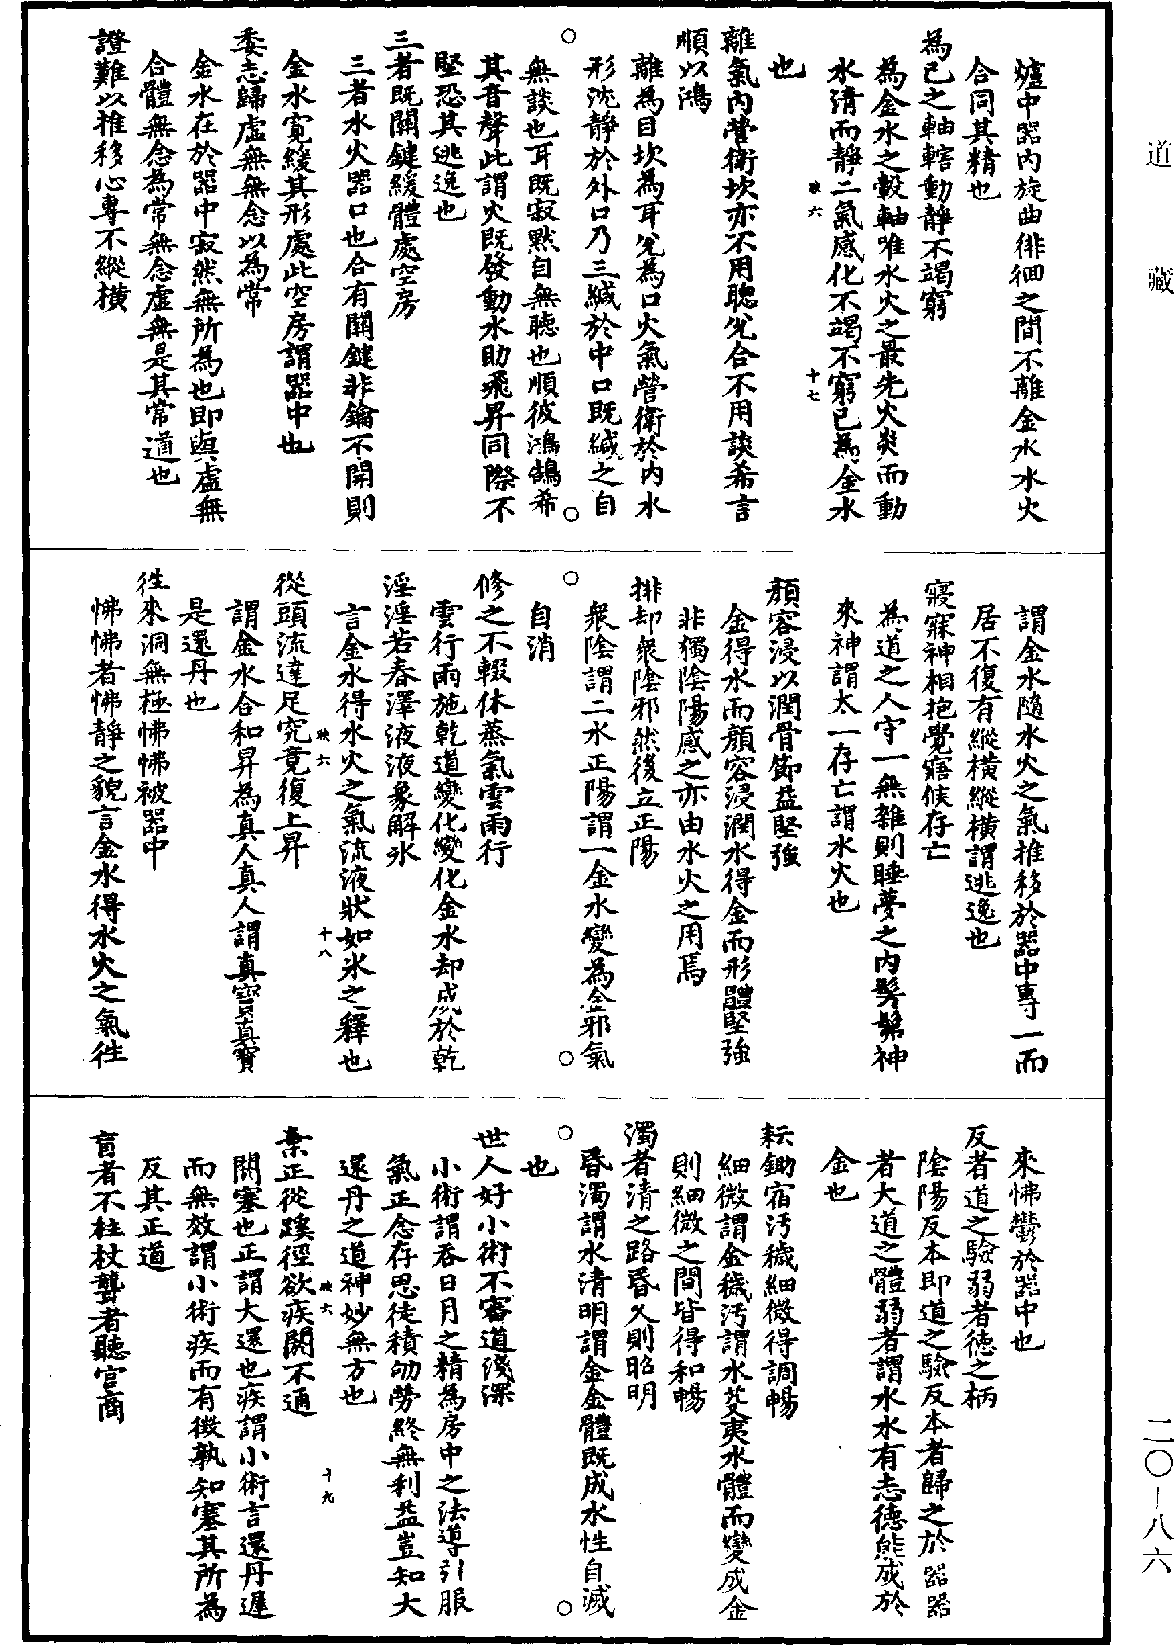 道藏
爐中器内旋曲徘徊之間不離金水水火
合同其精也
為己之軸轄動靜不竭窮
為金水之轂軸唯水火之最先火炎而動
水清而靜二氣感化不竭不窮已為金水
映六 十七
也
離氣内營衛坎亦不用聰兌合不用談希言
順以鴻
離為目坎為耳兌為口火氣營衛於内水
形沈靜於外口乃三緘於中口既緘之自
無談也耳既寂默自無聽也順彼鴻鵠希
其音聲此謂火既發動水助飛昇同際不
堅恐其逃逸也
三者既關鍵緩體處空房
三者水火器口也合有關鍵非鑰不開則
金水寛緩其形處此空房謂器中也
委志歸虛無無念以為常
金水在於器中寂然無所為也即與虛無
合體無念為常無念虛無是其常道也
證難以推移心專不縱橫
謂金水隨水火之氣推移於器中專一而
居不復有縱橫縱橫謂逃逸也
寢寐神相抱覺寤候存亡
為道之人守一無雜則睡夢之内髣髴神
來神謂太一存亡謂水火也
顏容浸以潤骨節益堅強
金得水而顏容浸潤水得金而形體堅強
非獨陰陽感之亦由水火之用焉
排却衆陰邪然後立正陽
衆陰謂二水正陽謂一金水變為金邪氣
自消
修之不輟休蒸氣雲雨行
雲行雨施乾道變化變化金水却成於乾
淫淫若春澤液液象解冰
言金水得水火之氣流液狀如冰之釋也
映六 十八
從頭流達足究竟復上昇
謂金水合和昇為真人真人謂真寶真寶
是還丹也
往來洞無極怫怫被器中
怫怫者怫靜之貌言金水得水火之氣往
來怫鬱於器中也
反者道之驗弱者德之柄
陰陽反本即道之驗反本者歸之於器器
者大道之體弱者謂水水有志德能成於
金也
耘鋤宿汚穢細微得調暢
細微謂金穢汚謂水芟夷水體而變成金
則細微之間皆得和暢
濁者清之路昏久則昭明
昏濁謂水清明謂金金體既成水性自滅
也
世人好小術不審道淺深
小術謂吞日月之精為房中之法導引服
氣正念存思徒積劬勞終無利益豈知大
還丹之道神妙無方也
映六 十九
棄正從蹊徑欲疾閼不通
閼塞也正謂大還也疾謂小術言還丹遲
而無效謂小術疾而有徵孰知塞其所為
反其正道
盲者不柱杖聾者聽宮商
二〇—八六